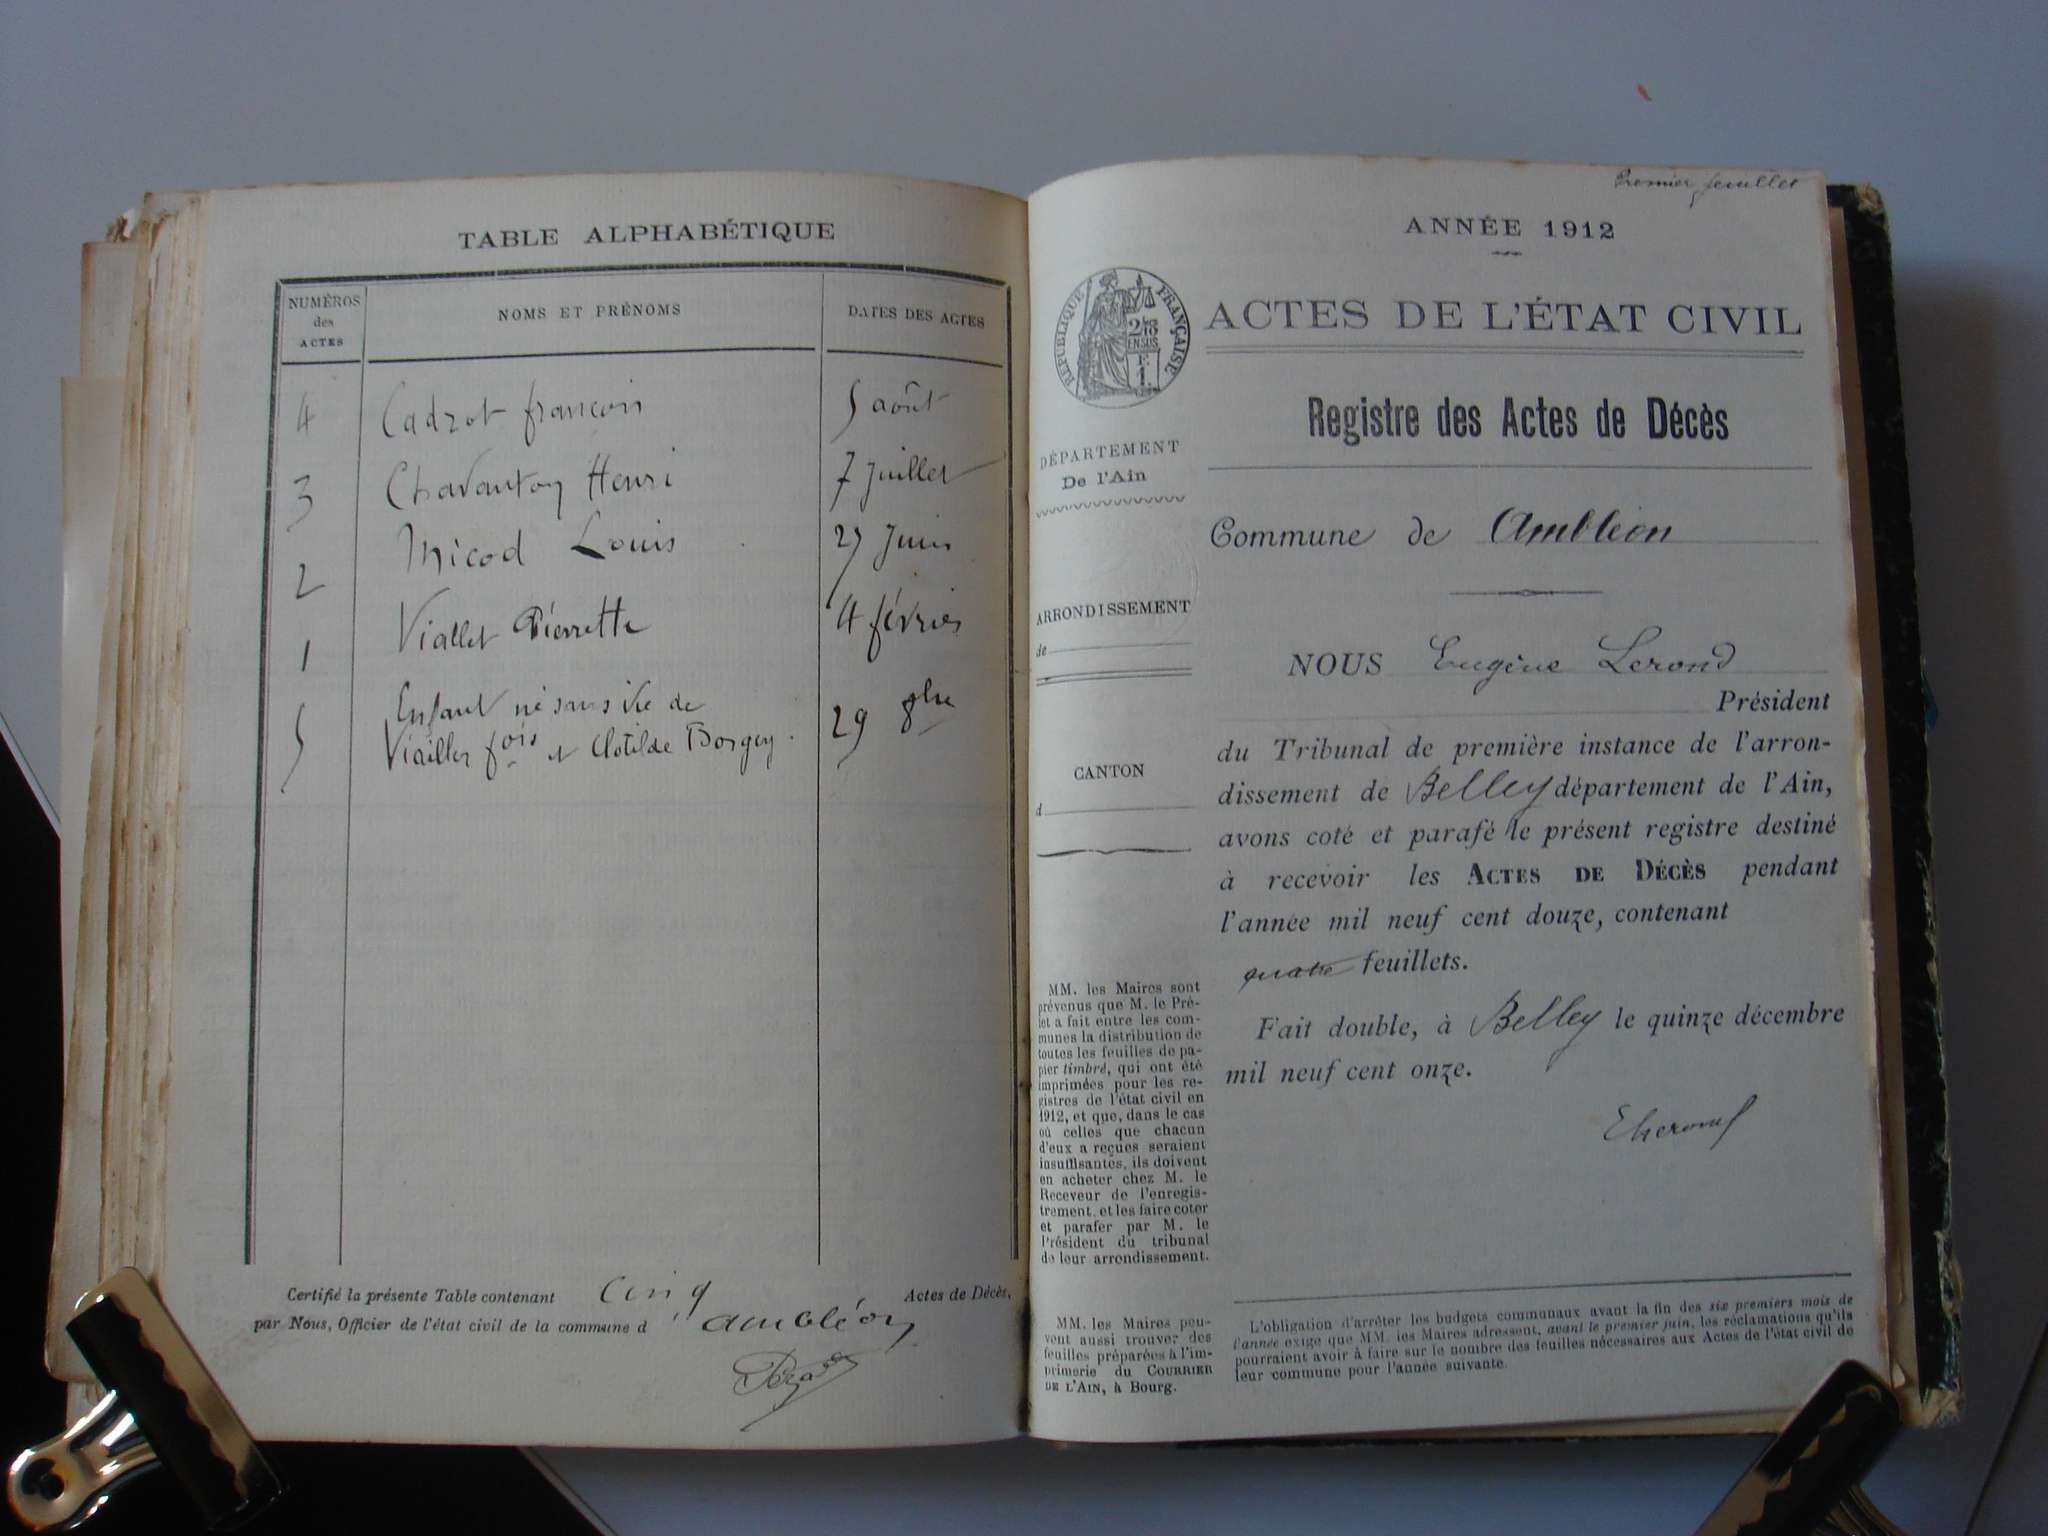 TABLE ALPHABÉTIQUE
NUMÉROS des ACTES
NOMS ET PRÉNOMS
DATES DES ACTES
4 Cadrot françois 5 août
3 Chavanton Henri 7 juillet
2 Micod Louis 27 juin
1 Viallet Pierrette 4 février
5 Enfant né sans vie de
Viallet fois et Clotilde Borgey. 29 8bre
Certifié la présente Table contenant cinq Actes de Décès,
par Nous, Officier de l'état civil de la commune d'ambléon
Premier feuillet
ANNÉE 1912
RÉPUBLIQUE FRANÇAISE
ACTES DE L'ÉTAT CIVIL
Registre des Actes de Décès
DÉPARTEMENT
De l'Ain
Commune de Ambléon
ARRONDISSEMENT
de
NOUS Eugène Lerond
Président
du Tribunal de première instance de l'arron-
dissement de Belley département de l'Ain,
CANTON
d
avons coté et parafé le présent registre destiné
à recevoir les ACTES DE DÉCÈS pendant
l'année mil neuf cent douze, contenant
quatre feuillets.
Fait double, à Belley le quinze décembre
mil neuf cent onze.
MM. les Maires sont
prévenus que M. le Pré-
fet a fait entre les com-
munes la distribution de
toutes les feuilles de pa-
pier timbré, qui ont été
imprimées pour les re-
gistres de l'état civil en
1912, et que, dans le cas
où celles que chacun
d'eux a reçues seraient
insuffisantes, ils doivent
en acheter chez M. le
Receveur de l'enregis-
trement, et les faire coter
et parafer par M. le
Président du tribunal
de leur arrondissement.
MM. les Maires peu-
vent aussi trouver des
feuilles préparées à l'im-
primerie du COURRIER
DE L'AIN, à Bourg.
L'obligation d'arrêter les budgets communaux avant la fin des six premiers mois de
l'année exige que MM. les Maires adressent, avant le premier juin, les réclamations qu'ils
pourraient avoir à faire sur le nombre des feuilles nécessaires aux Actes de l'état civil de
leur commune pour l'année suivante.